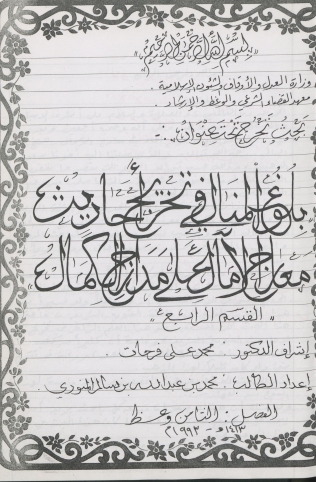 بسم الله الرحمن الرحيم
وزارة العدل والأوقاف والشئون الإسلامية .
معهد القضاء الشرعي والوعظ والإرشاد .
بحث تخرج تحت عنوان :-
بلوغ المنال في تخريج أحاديث
معارج الآمال على مدارج الكمال
" القسم الرابع "
إشراف الدكتور : محمد علي فرحات .
إعداد الطالب : محمد بن عبدالله بن سالم المنوري .
الفصل : الثامن وعظ
١٤١٣هـ - ١٩٩٣م